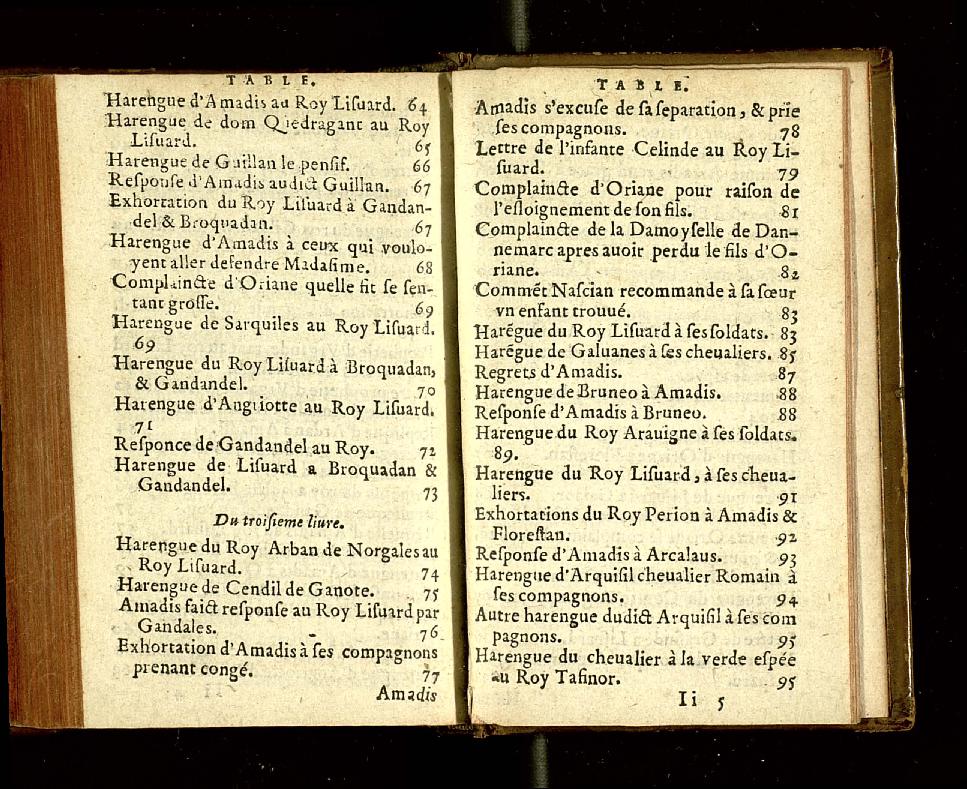 TABLE.
Harengue d'Amadis au Roy Liſuard. 64
Harengue de dom Quedragant au Roy
Liſuard. 65
Harengue de Guillan le penſif. 66
Reſponſe d'Amadis audict Guillan. 67
Exhortation du Roy Liſuard à Gandan-
del & Broquadan. 67
Harengue d'Amadis à ceux qui voulo-
yent aller defendre Madaſime. 68
Complaincte d'Oriane quelle fit ſe ſen-
tant groſſe. 69
Harengue de Sarquiles au Roy Liſuard.
69
Harengue du Roy Liſuard à Broquadan,
& Gandandel. 70
Harengue d'Angriotte au Roy Liſuard.
71
Reſponce de Gandandel au Roy. 72
Harengue de Liſuard a Broquadan &
Gandandel. 73
Du troiſieme liure.
Harengue du Roy Arban de Norgales au
Roy Liſuard. 74
Harengue de Cendil de Ganote. 75
Amadis faict reſponſe au Roy Liſuard par
Gandales. 76
Exhortation d'Amadis à ſes compagnons
prenant congé. 77
Amadis
TABLE.
Amadis s'excuſe de ſa ſeparation, & prie
ſes compagnons. 78
Lettre de l'infante Celinde au Roy Li-
ſuard. 79
Complaincte d'Oriane pour raiſon de
l'eſloignement de ſon fils. 81
Complaincte de la Damoyſelle de Dan-
nemarc apres auoir perdu le fils d'O-
riane. 82
Commēt Naſcian recommande à ſa ſœur
vn enfant trouué. 83
Harēgue du Roy Liſuard à ſes ſoldats. 83
Harēgue de Galuanes à ſes cheualiers. 85
Regrets d'Amadis. 87
Harengue de Bruneo à Amadis. 88
Reſponſe d'Amadis à Bruneo. 88
Harengue du Roy Arauigne à ſes ſoldats.
89.
Harengue du Roy Liſuard, à ſes cheua-
liers. 91
Exhortations du Roy Perion à Amadis &
Floreſtan. 92
Reſponſe d'Amadis à Arcalaus. 93
Harengue d'Arquiſil cheualier Romain à
ſes compagnons. 94
Autre harengue dudict Arquiſil à ſes com
pagnons. 95
Harengue du cheualier à la verde eſpée
au Roy Tafinor. 95
Ii 5